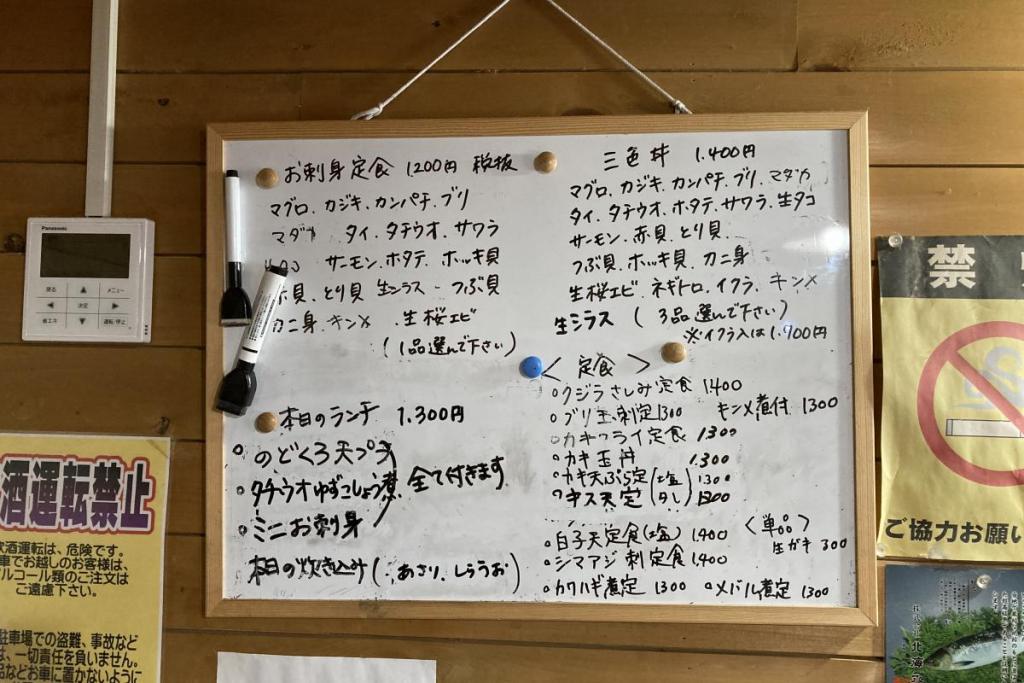 お刺身定食 1200円 税抜
マグロ、カジキ、カンパチ、ブリ
マダカ タイ、タチウオ、サワラ
サーモン、ホタテ、ホッキ貝
赤貝、とり貝 生シラス つぶ貝
カニ身、キンメ 、生桜エビ
(1品選んで下さい)
本日のランチ 1.300円
のどくろ天プラ
タチウオゆずこしょう煮 全て付きます
ミニお刺身
本日の炊き込み(、あさり、しらうお)
三色丼 1.400円
マグロ、カジキ、カンパチ、ブリ、マダカ
タイ、タチウオ、ホタテ、サワラ、生タコ
サーモン、赤貝、とり貝、
つぶ貝、ホッキ貝、カニ身
生桜エビ、ネギトロ、イクラ、キンメ
生シラス (3品選んで下さい)
※イクラ入は1.900円
<定食>
○クジラさしみ定食 1400
○ブリ玉刺定1300 キンメ煮付 1300
○カキフライ定食 1300
○カキ玉丼 1300
○カキ天ぷら定(塩) 1300
○キス天定(タレ) 1300
○白子天定食(塩) 1,400
○シマアジ刺定食 1,400
<単品>
生ガキ 300
○カワハギ煮定 1300 ○メバル煮定 1300
Panasonic
戻る
メニュー
決定
省エネ
運転/停止
酒運転禁止
飲酒運転は、危険です。
車でお越しのお客様は、
アルコール類のご注文は
ご遠慮下さい。
駐車場での盗難、事故など
は、一切責任を負いません。
品などお車に置かないように
禁
ご協力お願い
北海